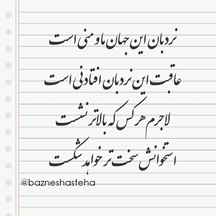 نردبان این جهان ما و منی است
عاقبت این نردبان افتادنی است
لاجرم هر کس که بالاتر نشست
استخوانش سخت تر خواهد شکست
@bazneshasteha